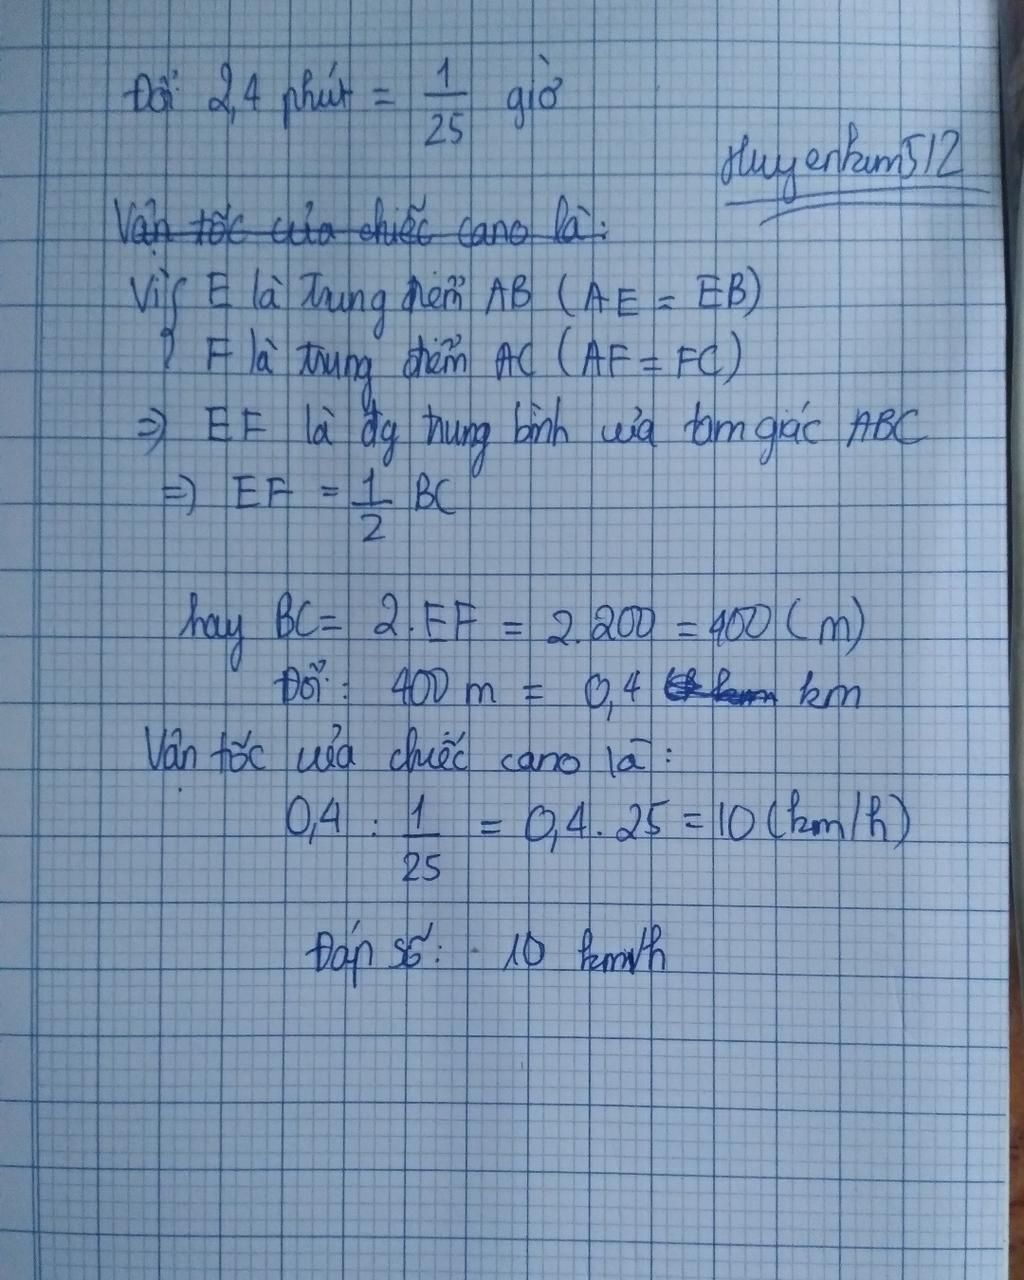 Đổi: 2,4 phút = 1/25 giờ
Huyenkum512
Vận tốc của chiếc cano là:
Vì { E là trung điểm AB (AE = EB)
F là trung điểm AC (AF = FC)
=> EF là đg trung bình của tam giác ABC
=> EF = 1/2 BC
hay BC = 2.EF = 2.200 = 400 (m)
Đổi: 400 m = 0,4 km
Vận tốc của chiếc cano là:
0,4 : 1/25 = 0,4 . 25 = 10 (km/h)
Đáp số: 10 km/h